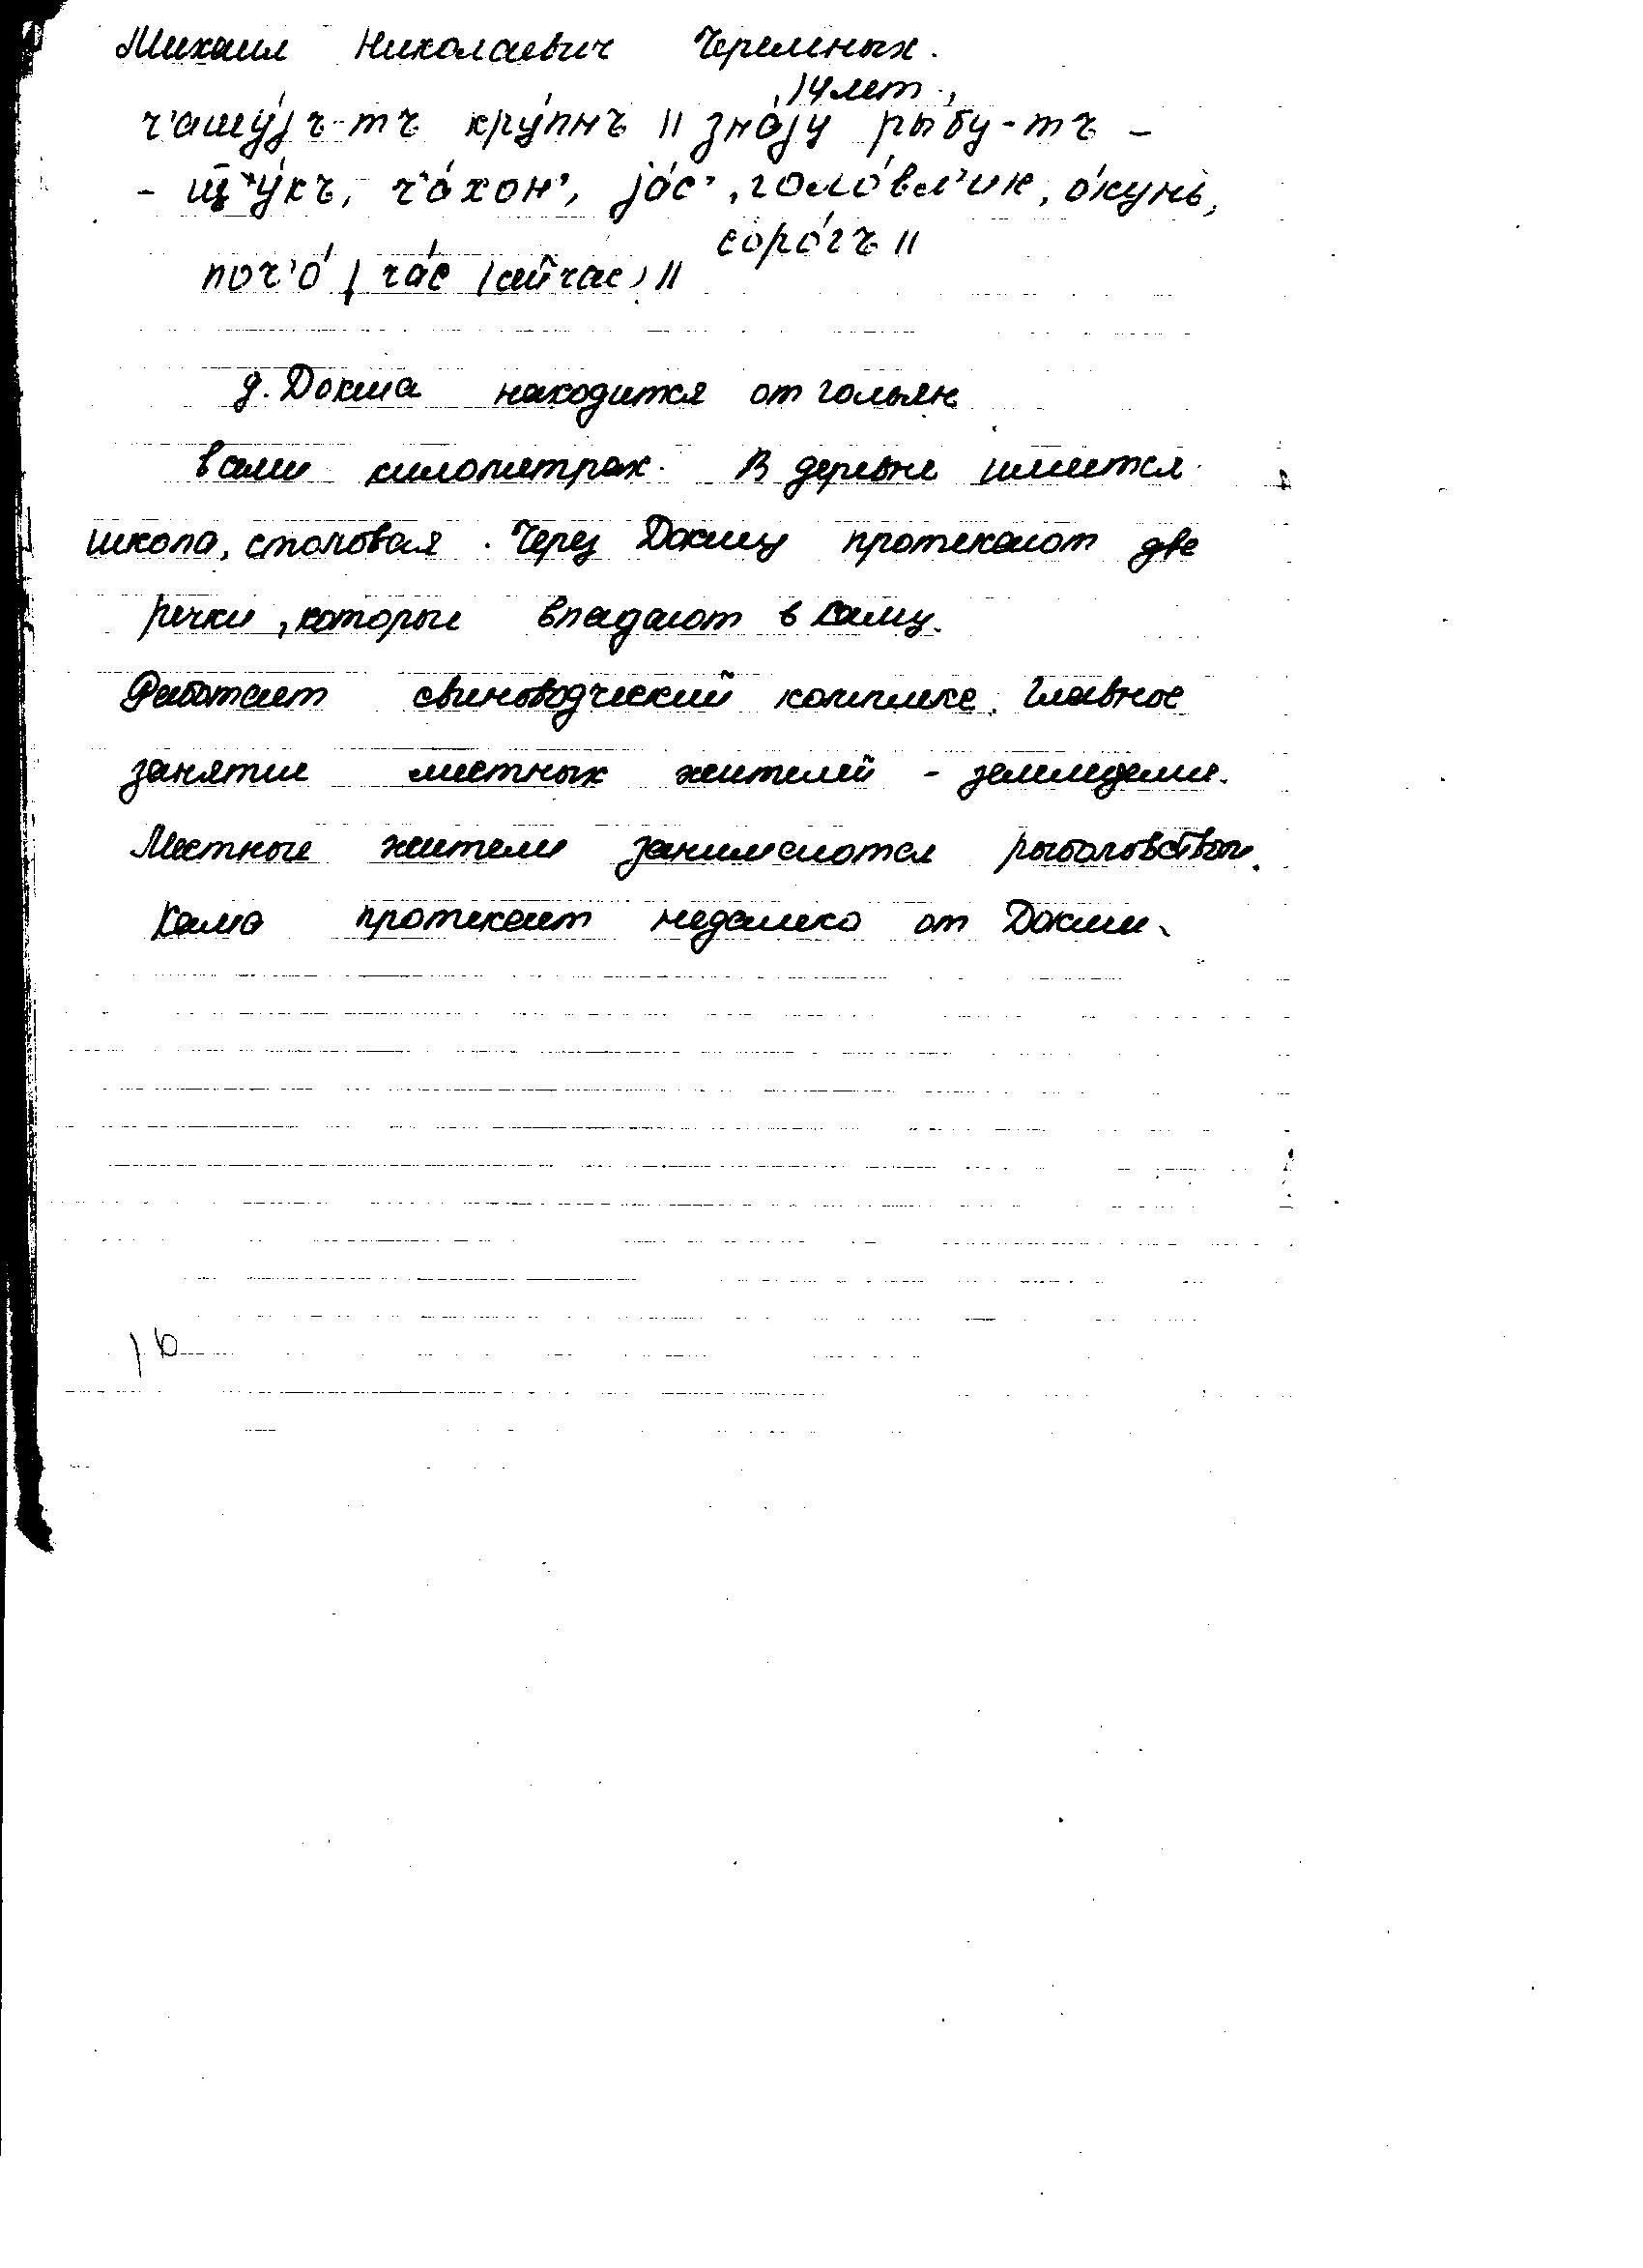 Михаил Николаевич Черемных.
14 лет.
ч'ашу́jъ-тъ кру́пнъ || зна́jу ры́бу-тъ –
- щ'у́къ, ч'а́хон', jа́с', голо́вл'ик, о́кунь,
соро́гъ ||
поч'о́ | ча́с (сейчас) ||
д. Докша находится от Гольян
в семи километрах. В деревне имеется
школа, столовая. Через Докшу протекают две
речки, которые впадают в Каму.
Работает свиноводческий комплекс. Главное
занятие местных жителей - земледелие.
Местные жители занимаются рыболовством.
Кама протекает недалеко от Докши.
16